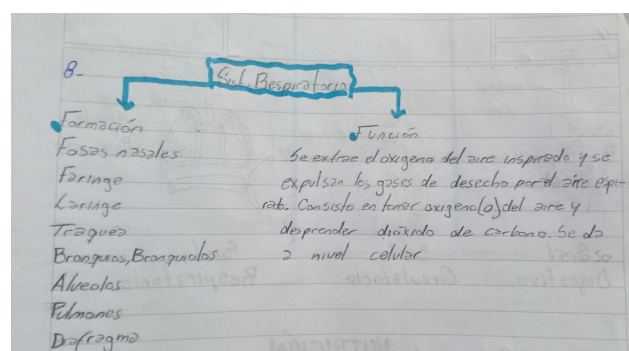 8-
Sist. Respiratorio
Formación
Fosas nasales
Faringe
Laringe
Traquea
Bronquios, Bronquiolos
Alveolos
Pulmones
Diafragma
Función
Se extrae el oxigeno del aire inspirado y se
expulsan los gases de desecho por el aire espi-
rab. Consiste en tomar oxigeno(o) del aire y
desprender dióxido de carbono. Se da
a nivel celular